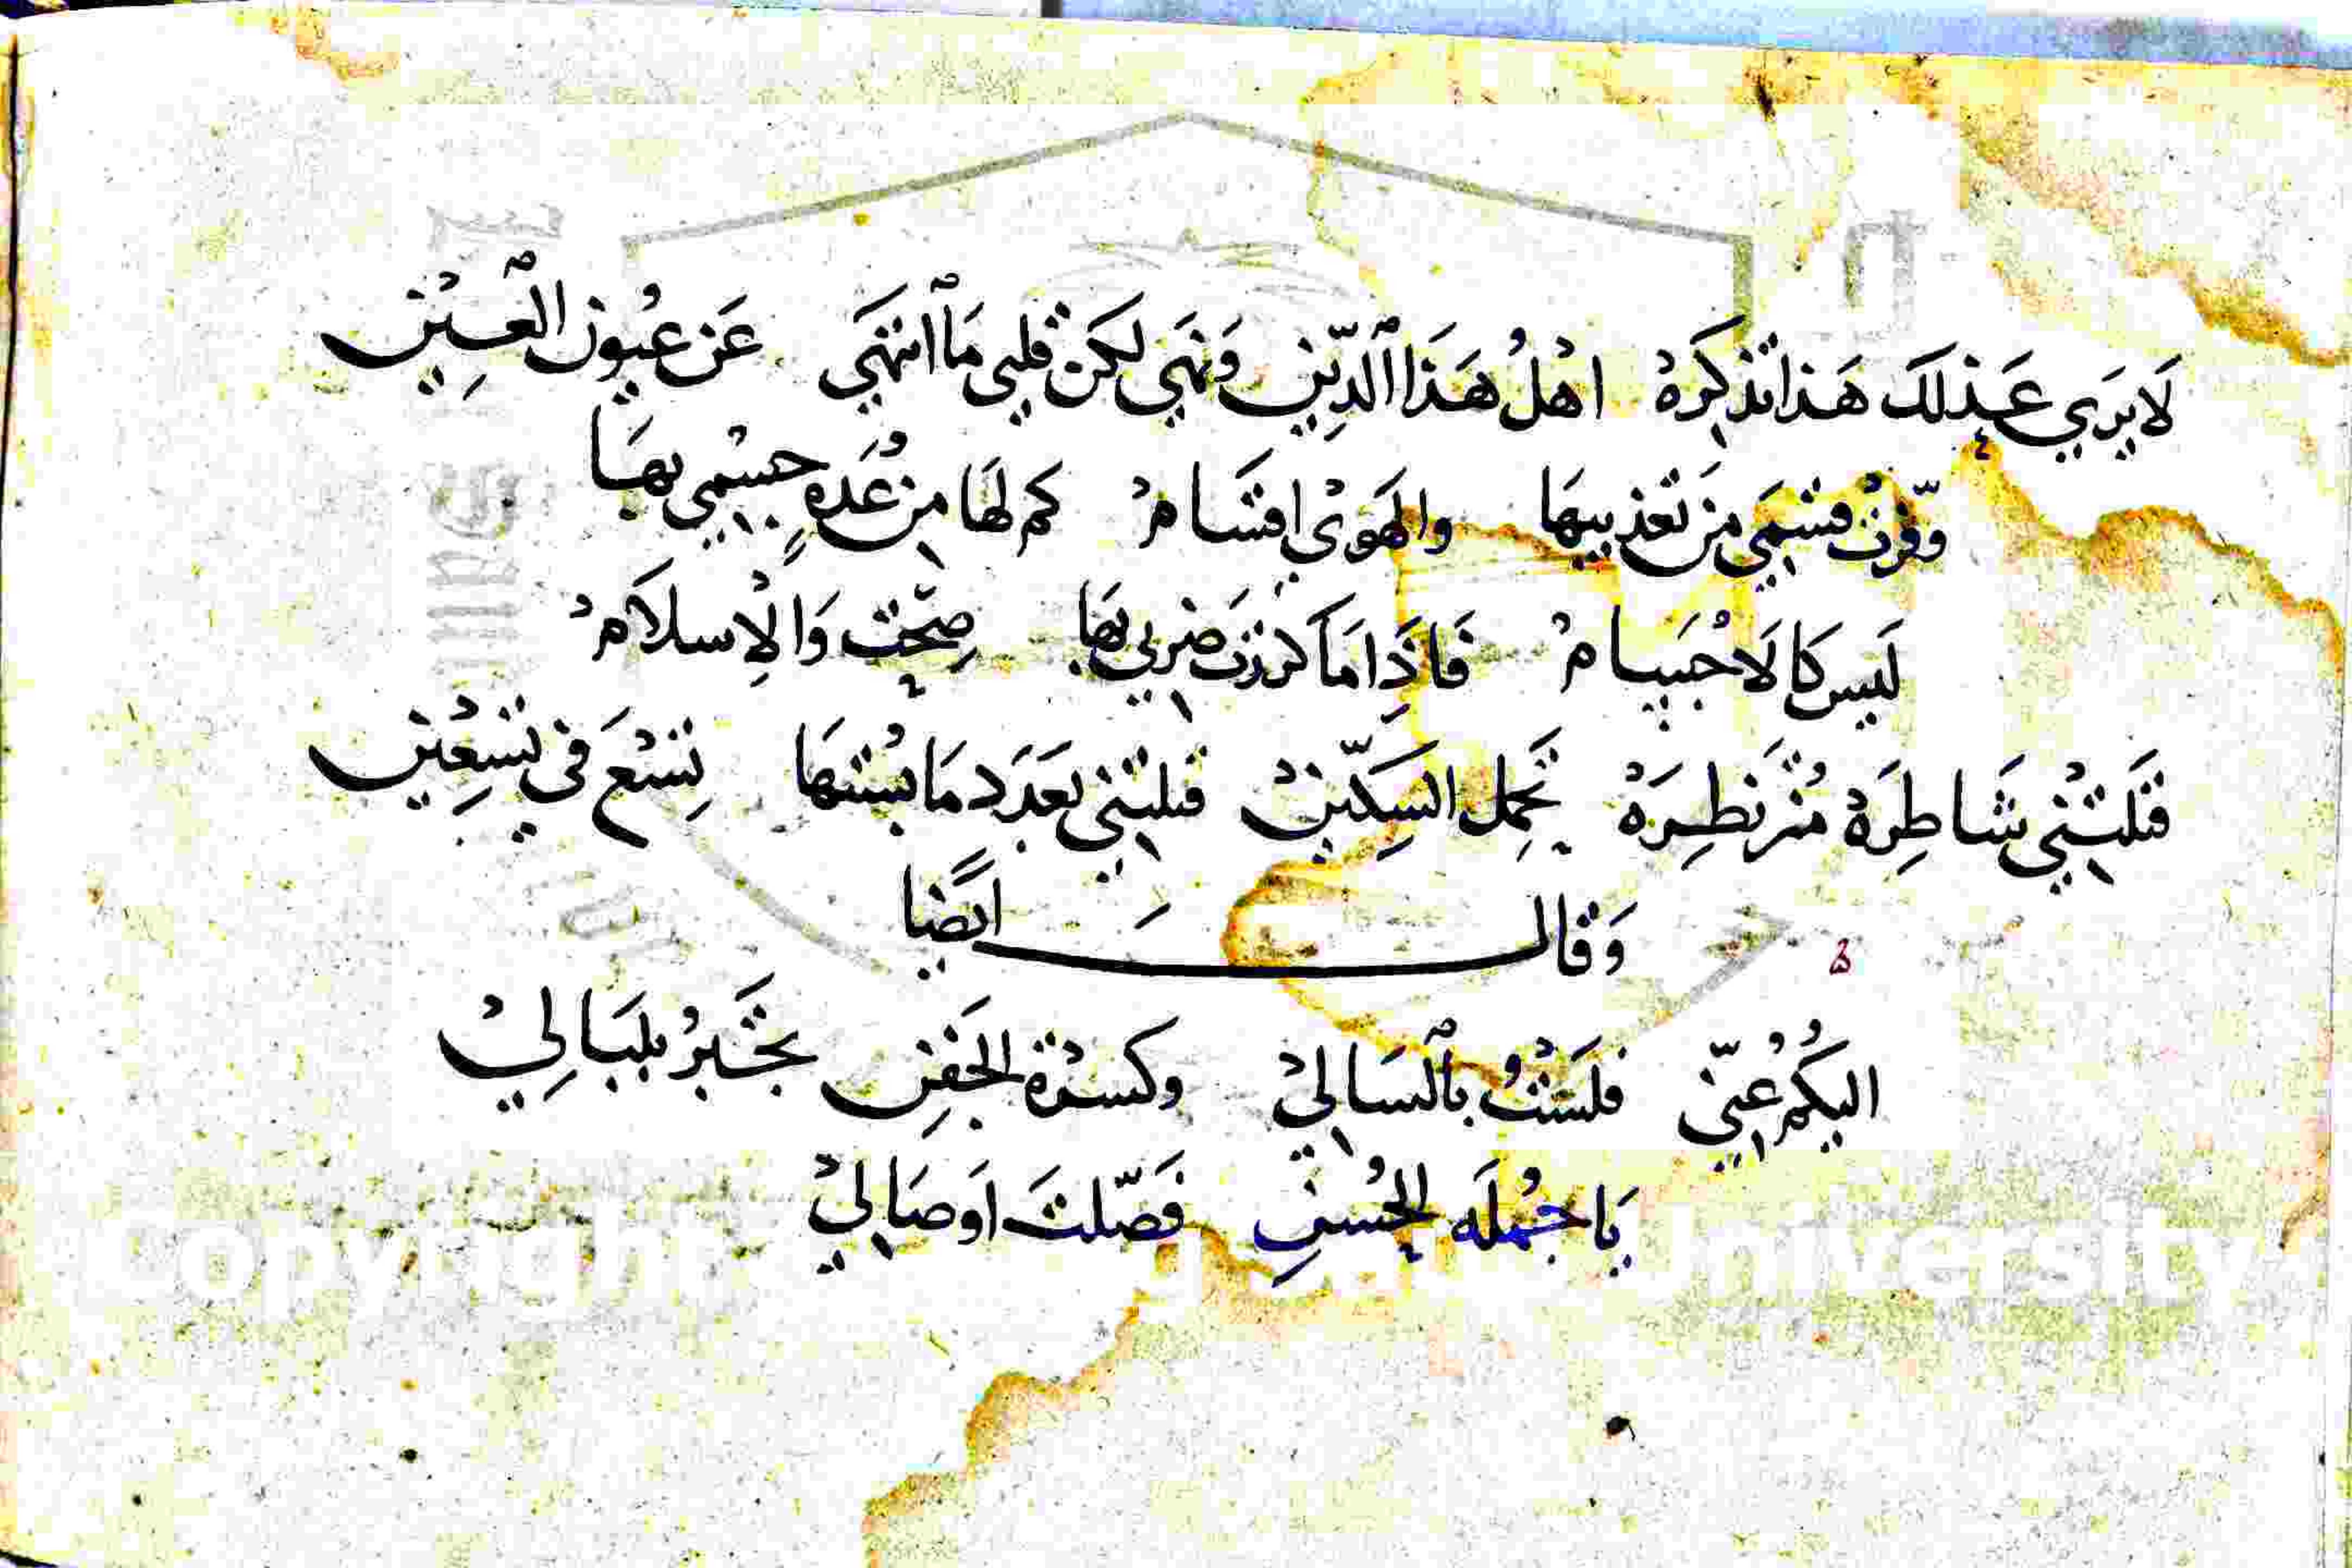 لَا يَرَي عَذلَكَ هَذا تَذكِرَهْ اهْلُ هَذَا ٱلدِّيْنِ وَنَهَي لكَن قلبي مَا ٱنتهَي عَن عُيون ٱلْعِيْنِ
وفّرتْ قسْمَي مِن تَعذيبهَا والهَوَيْ اقسَامْ كم لهَا من عُدَةٍ جسْمي بهَا
لَيسَ كا لَاجْسَامْ فَاذَا مَا كررَت ضَربي بهَا صِحّت وَالْاِسلاَمْ
قتَلتْني شَاطِرَهْ مُتَنطِرَهْ تَحمِل السِكّينْ قتلتني بعَدَد مَا بُستهَا تِسْع في تسْعِين
وَقالَ ايضًا
اليكُمُ عُنيّ فلَسْتُ بٱلسَاليْ وكسْرَة الجَفنِ تخَبرُ بلبَالِيْ
يَا جُملَه الحُسنِ فَصّلتَ اَوصَاليْ
Copyright University